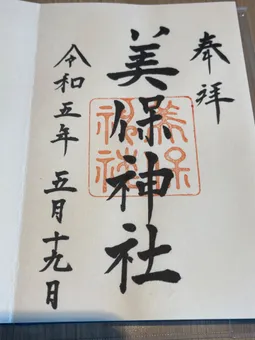 奉拝
美保神社
令和五年 五月十九日
美保
神社